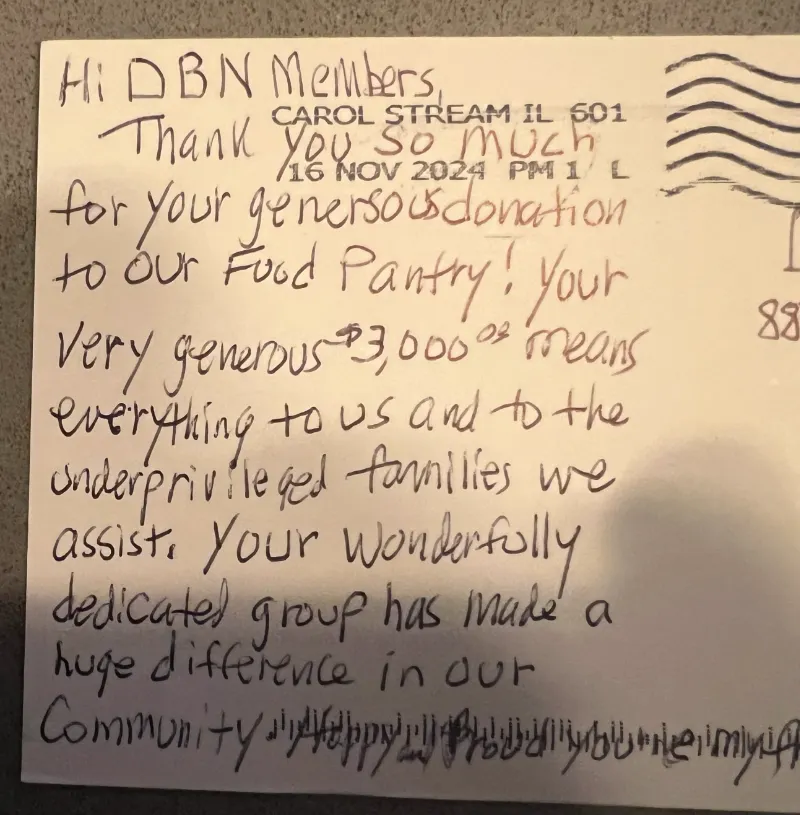 Hi DBN Members,
CAROL STREAM IL 601
Thank you so much
16 NOV 2024 PM 1 L
for your genersous donation
to our Food Pantry! Your
very generous $3,000 00 means
everything to us and to the
underprivileged families we
assist. Your wonderfully
dedicated group has made a
huge difference in our
Community.
88